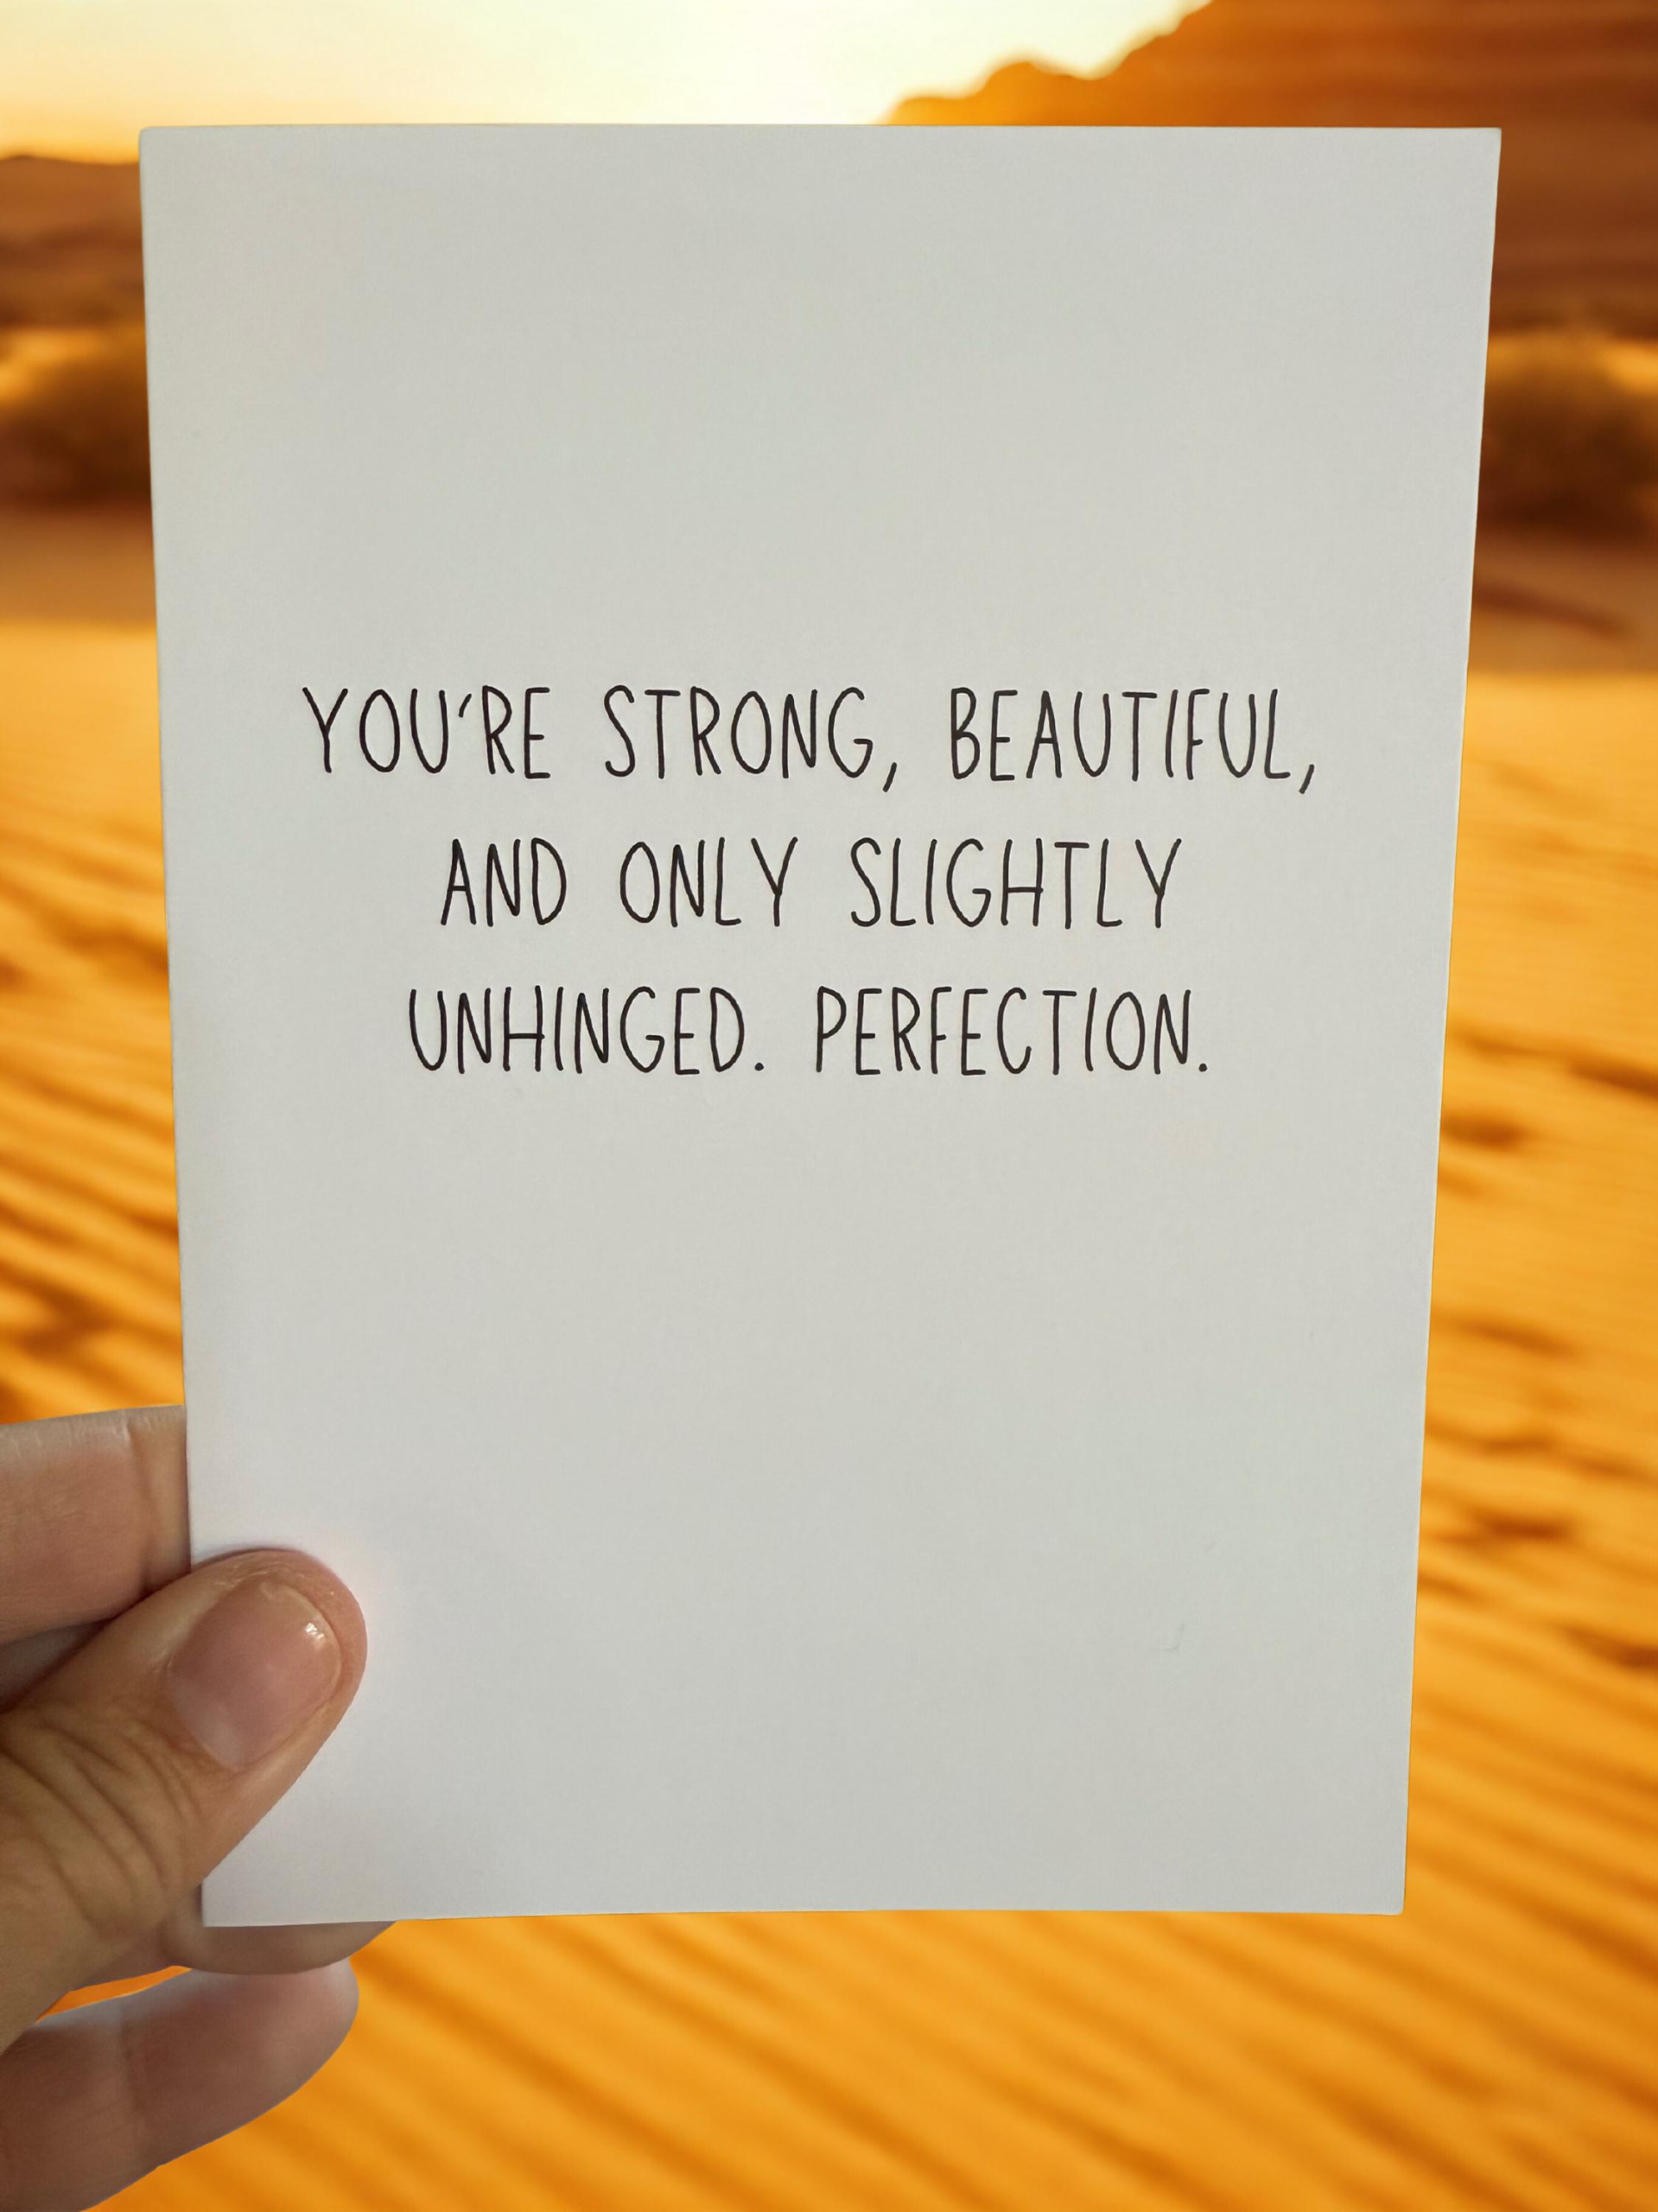 YOU'RE STRONG, BEAUTIFUL,
AND ONLY SLIGHTLY
UNHINGED. PERFECTION.